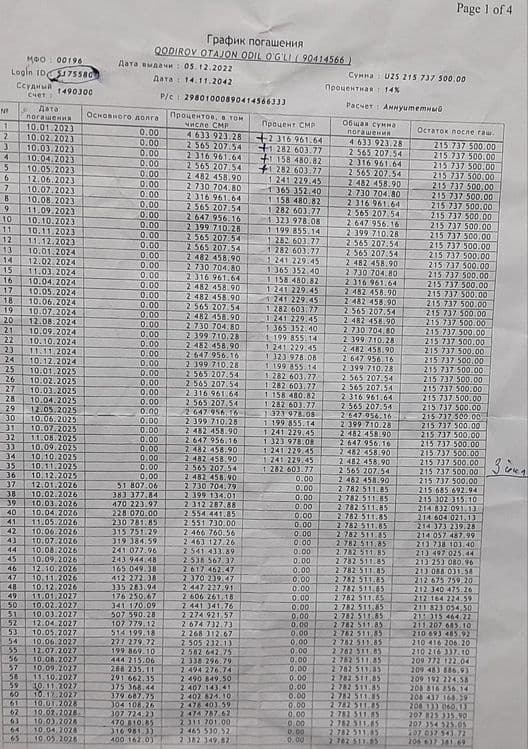 Page 1 of 4
График погашения
QODIROV OTAJON ODIL O'G'LI ( 90414566 )
МФО : 00196 Дата выдачи : 05.12.2022 Сумма : UZS 215 737 500.00
Login ID: 5175580 Дата : 14.11.2042 Процентная : 14%
Ссудный счет : 1490300 Р/с : 29801000890414566333 Расчет : Аннуитетный
№ Дата погашения Основного долга Процентов, в том числе СМР Процент СМР Общая сумма погашения Остаток после гаш.
1 10.01.2023 0.00 4 633 923.28 + 2 316 961.64 4 633 923.28 215 737 500.00
2 10.02.2023 0.00 2 565 207.54 + 1 282 603.77 2 565 207.54 215 737 500.00
3 10.03.2023 0.00 2 316 961.64 + 1 158 480.82 2 316 961.64 215 737 500.00
4 10.04.2023 0.00 2 565 207.54 + 1 282 603.77 2 565 207.54 215 737 500.00
5 10.05.2023 0.00 2 482 458.90 1 241 229.45 2 482 458.90 215 737 500.00
6 12.06.2023 0.00 2 730 704.80 1 365 352.40 2 730 704.80 215 737 500.00
7 10.07.2023 0.00 2 316 961.64 1 158 480.82 2 316 961.64 215 737 500.00
8 10.08.2023 0.00 2 565 207.54 1 282 603.77 2 565 207.54 215 737 500.00
9 11.09.2023 0.00 2 647 956.16 1 323 978.08 2 647 956.16 215 737 500.00
10 10.10.2023 0.00 2 399 710.28 1 199 855.14 2 399 710.28 215 737 500.00
11 10.11.2023 0.00 2 565 207.54 1 282 603.77 2 565 207.54 215 737 500.00
12 11.12.2023 0.00 2 565 207.54 1 282 603.77 2 565 207.54 215 737 500.00
13 10.01.2024 0.00 2 482 458.90 1 241 229.45 2 482 458.90 215 737 500.00
14 12.02.2024 0.00 2 730 704.80 1 365 352.40 2 730 704.80 215 737 500.00
15 11.03.2024 0.00 2 316 961.64 1 158 480.82 2 316 961.64 215 737 500.00
16 10.04.2024 0.00 2 482 458.90 1 241 229.45 2 482 458.90 215 737 500.00
17 10.05.2024 0.00 2 482 458.90 1 241 229.45 2 482 458.90 215 737 500.00
18 10.06.2024 0.00 2 565 207.54 1 282 603.77 2 565 207.54 215 737 500.00
19 10.07.2024 0.00 2 482 458.90 1 241 229.45 2 482 458.90 215 737 500.00
20 12.08.2024 0.00 2 730 704.80 1 365 352.40 2 730 704.80 215 737 500.00
21 10.09.2024 0.00 2 399 710.28 1 199 855.14 2 399 710.28 215 737 500.00
22 10.10.2024 0.00 2 482 458.90 1 241 229.45 2 482 458.90 215 737 500.00
23 11.11.2024 0.00 2 647 956.16 1 323 978.08 2 647 956.16 215 737 500.00
24 10.12.2024 0.00 2 399 710.28 1 199 855.14 2 399 710.28 215 737 500.00
25 10.01.2025 0.00 2 565 207.54 1 282 603.77 2 565 207.54 215 737 500.00
26 10.02.2025 0.00 2 565 207.54 1 282 603.77 2 565 207.54 215 737 500.00
27 10.03.2025 0.00 2 316 961.64 1 158 480.82 2 316 961.64 215 737 500.00
28 10.04.2025 0.00 2 565 207.54 1 282 603.77 2 565 207.54 215 737 500.00
29 12.05.2025 0.00 2 647 956.16 1 323 978.08 2 647 956.16 215 737 500.00
30 10.06.2025 0.00 2 399 710.28 1 199 855.14 2 399 710.28 215 737 500.00
31 10.07.2025 0.00 2 482 458.90 1 241 229.45 2 482 458.90 215 737 500.00
32 11.08.2025 0.00 2 647 956.16 1 323 978.08 2 647 956.16 215 737 500.00
33 10.09.2025 0.00 2 482 458.90 1 241 229.45 2 482 458.90 215 737 500.00
34 10.10.2025 0.00 2 482 458.90 1 241 229.45 2 482 458.90 215 737 500.00
35 10.11.2025 0.00 2 565 207.54 1 282 603.77 2 565 207.54 215 737 500.00
36 10.12.2025 0.00 2 482 458.90 0.00 2 482 458.90 215 737 500.00
37 12.01.2026 51 807.06 2 730 704.79 0.00 2 782 511.85 215 685 692.94
38 10.02.2026 383 377.84 2 399 134.01 0.00 2 782 511.85 215 302 315.10
39 10.03.2026 470 223.97 2 312 287.88 0.00 2 782 511.85 214 832 091.13
40 10.04.2026 228 070.00 2 554 441.85 0.00 2 782 511.85 214 604 021.13
41 11.05.2026 230 781.85 2 551 730.00 0.00 2 782 511.85 214 373 239.28
42 10.06.2026 315 751.29 2 466 760.56 0.00 2 782 511.85 214 057 487.99
43 10.07.2026 319 384.59 2 463 127.26 0.00 2 782 511.85 213 738 103.40
44 10.08.2026 241 077.96 2 541 433.89 0.00 2 782 511.85 213 497 025.44
45 10.09.2026 243 944.48 2 538 567.37 0.00 2 782 511.85 213 253 080.96
46 12.10.2026 165 049.38 2 617 462.47 0.00 2 782 511.85 213 088 031.58
47 10.11.2026 412 272.38 2 370 239.47 0.00 2 782 511.85 212 675 759.20
48 10.12.2026 335 283.94 2 447 227.91 0.00 2 782 511.85 212 340 475.26
49 11.01.2027 176 250.67 2 606 261.18 0.00 2 782 511.85 212 164 224.59
50 10.02.2027 341 170.09 2 441 341.76 0.00 2 782 511.85 211 823 054.50
51 10.03.2027 507 590.28 2 274 921.57 0.00 2 782 511.85 211 315 464.22
52 12.04.2027 107 779.12 2 674 732.73 0.00 2 782 511.85 211 207 685.10
53 10.05.2027 514 199.18 2 268 312.67 0.00 2 782 511.85 210 693 485.92
54 10.06.2027 277 279.72 2 505 232.13 0.00 2 782 511.85 210 416 206.20
55 12.07.2027 199 869.10 2 582 642.75 0.00 2 782 511.85 210 216 337.10
56 10.08.2027 444 215.06 2 338 296.79 0.00 2 782 511.85 209 772 122.04
57 10.09.2027 288 235.11 2 494 276.74 0.00 2 782 511.85 209 483 886.93
58 11.10.2027 291 662.35 2 490 849.50 0.00 2 782 511.85 209 192 224.58
59 10.11.2027 375 368.44 2 407 143.41 0.00 2 782 511.85 208 816 856.14
60 10.12.2027 379 687.75 2 402 824.10 0.00 2 782 511.85 208 437 168.39
61 10.01.2028 304 108.26 2 478 403.59 0.00 2 782 511.85 208 133 060.13
62 10.02.2028 307 724.23 2 474 787.62 0.00 2 782 511.85 207 825 335.90
63 10.03.2028 470 810.85 2 311 701.00 0.00 2 782 511.85 207 354 525.05
64 10.04.2028 316 981.33 2 465 530.52 0.00 2 782 511.85 207 037 543.72
65 10.05.2028 400 162.03 2 382 349.82 0.00 2 782 511.85 206 637 381.69